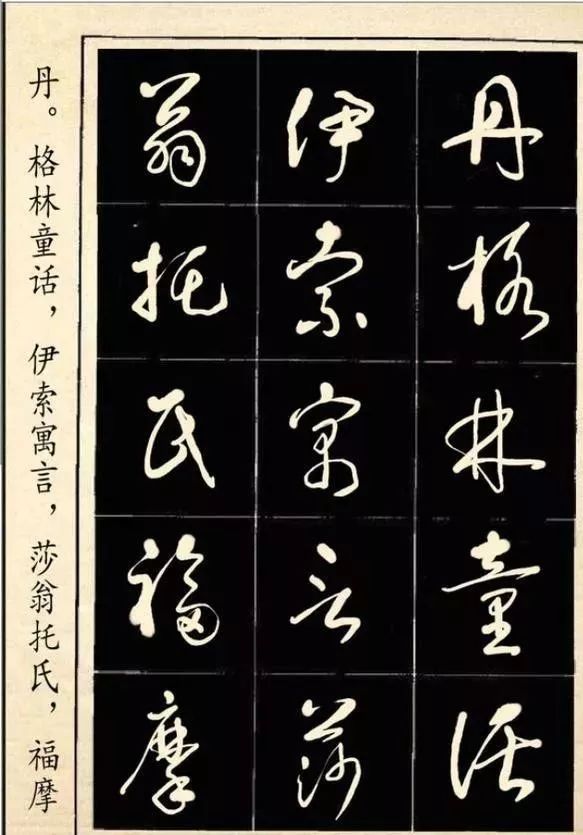 丹格林童话
伊索寓言莎
翁托氏福摩
丹。格林童话，伊索寓言，莎翁托氏，福摩